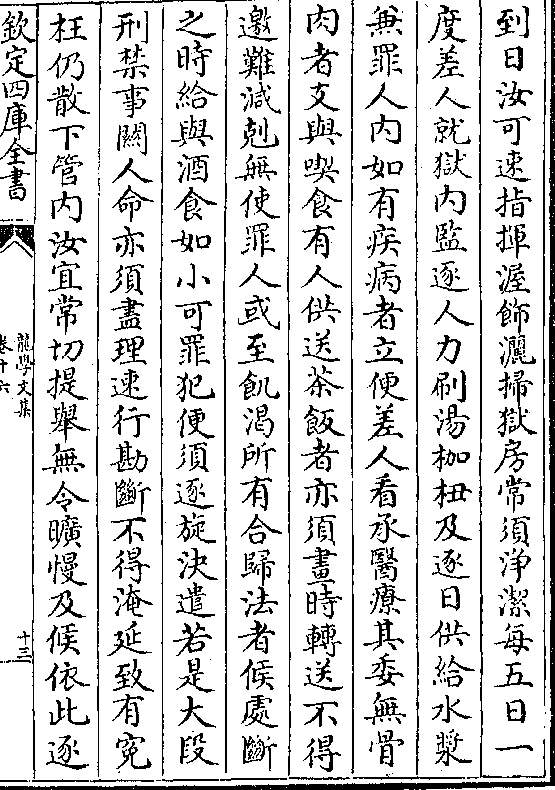 到日汝可速指揮渥飾灑掃獄房常須浄潔每五日一
度差人就獄内監逐人力刷湯枷杻及逐日供給水漿
兼罪人内如有疾病者立便差人看承醫療其委無骨
肉者支與喫食有人供送茶飯者亦須畫時轉送不得
邀難減剋無使罪人或至飢渴所有合歸法者候處斷
之時給與酒食如小可罪犯便須逐旋決遣若是大段
刑禁事闗人命亦須盡理速行勘斷不得淹延致有寃
枉仍散下管内汝宜常切提舉無令曠慢及候依此逐
欽定四庫全書
龍學文集
卷十六
十三